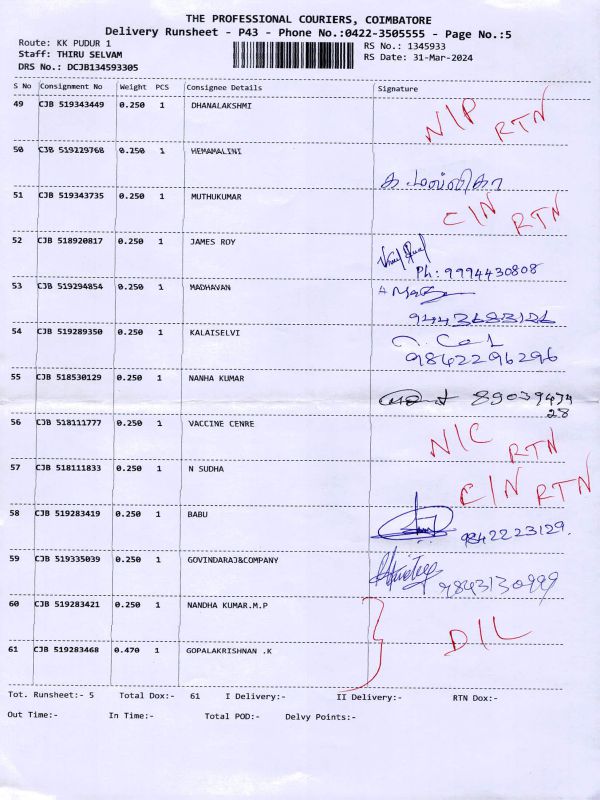 THE PROFESSIONAL COURIERS, COIMBATORE
Delivery Runsheet - P43 - Phone No.:0422-3505555 - Page No.:5
Route: KK PUDUR 1 RS No.: 1345933
Staff: THIRU SELVAM RS Date: 31-Mar-2024
DRS No.: DCJB134593305
S No Consignment No Weight PCS Consignee Details Signature
49 CJB 519343449 0.250 1 DHANALAKSHMI N/P RTN
50 CJB 519229768 0.250 1 HEMAMALINI
51 CJB 519343735 0.250 1 MUTHUKUMAR C/N RTN
52 CJB 518920817 0.250 1 JAMES ROY
Ph: 9994430808
53 CJB 519294854 0.250 1 MADHAVAN
54 CJB 519289350 0.250 1 KALAISELVI
9842296296
55 CJB 518530129 0.250 1 NANHA KUMAR 89039474
28
56 CJB 518111777 0.250 1 VACCINE CENRE N/C RTN
57 CJB 518111833 0.250 1 N SUDHA C/N RTN
58 CJB 519283419 0.250 1 BABU 9842223129.
59 CJB 519335039 0.250 1 GOVINDARAJ&COMPANY 9843130999
60 CJB 519283421 0.250 1 NANDHA KUMAR.M.P D/L
61 CJB 519283468 0.470 1 GOPALAKRISHNAN .K
Tot. Runsheet:- 5 Total Dox:- 61 I Delivery:- II Delivery:- RTN Dox:-
Out Time:- In Time:- Total POD:- Delvy Points:-